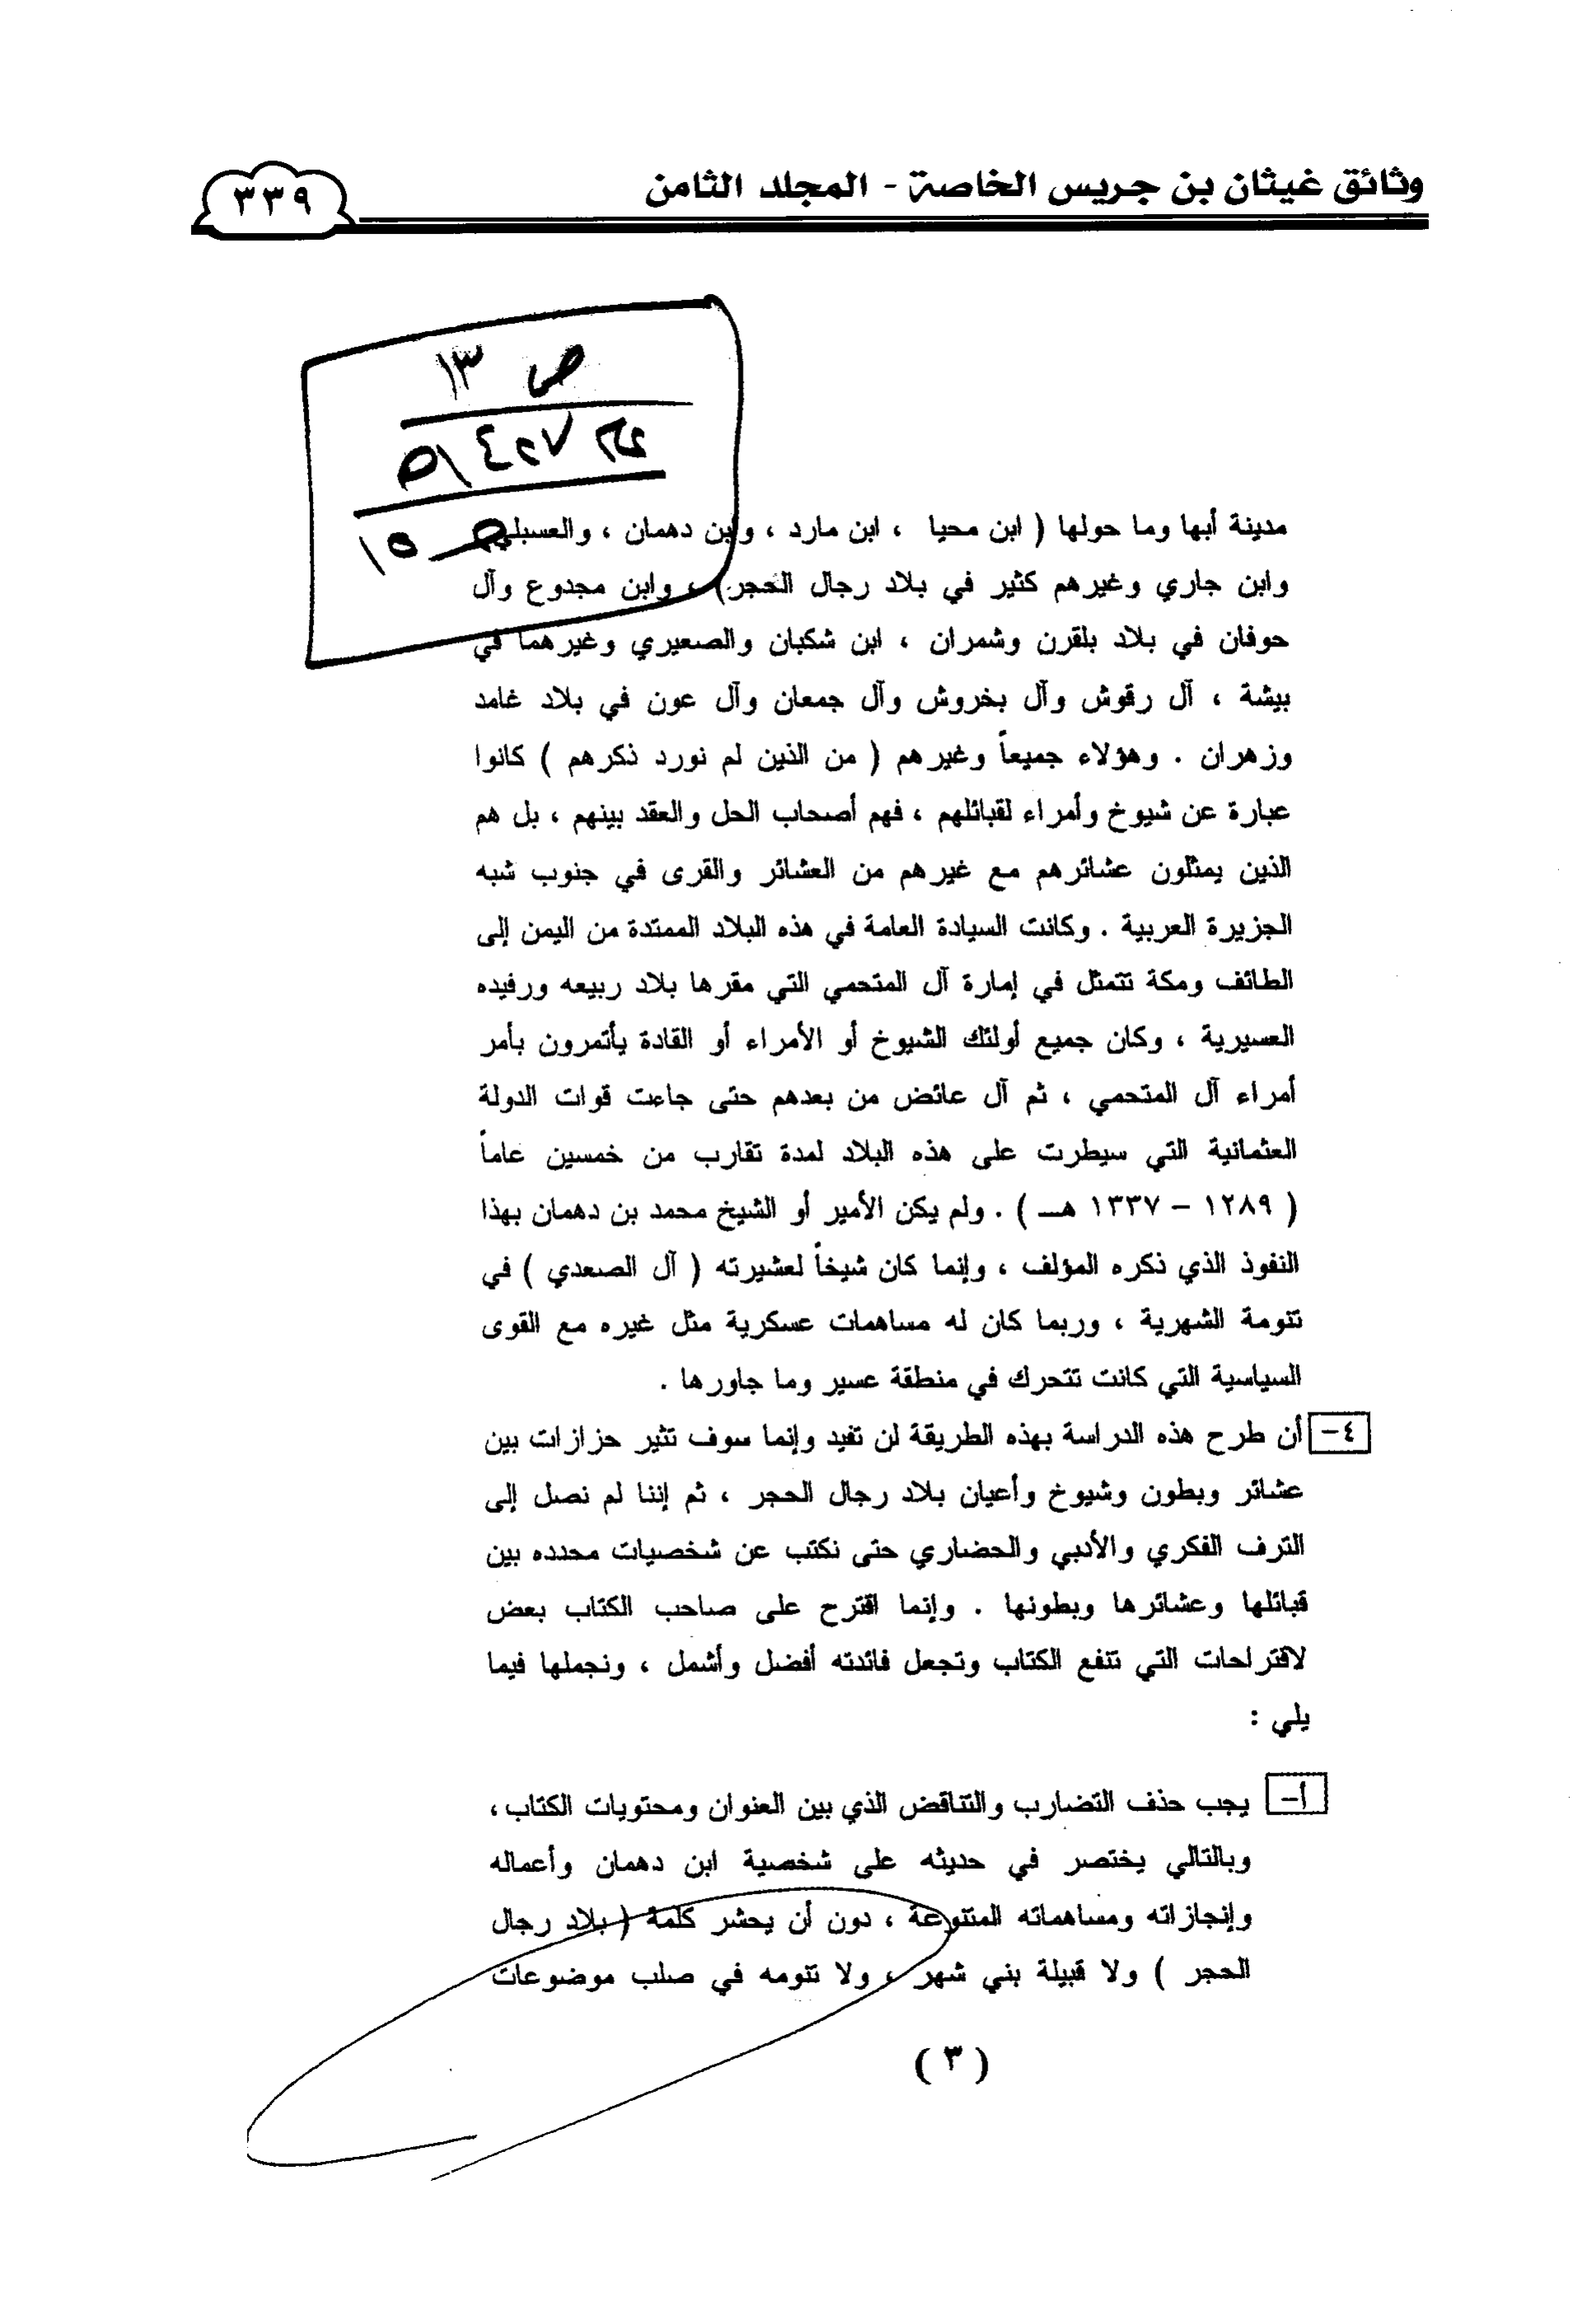 وثائق غيثان بن جريس الخاصة - المجلد الثامن
٣٣٩
ص ١٣
مدينة أبها وما حولها ( ابن محيا ، ابن مارد ، وابن دهمان ، والعسبلي
وابن جاري وغيرهم كثير في بلاد رجال الحجر) ، وابن مجدوع وآل
حوفان في بلاد بلقرن وشمران ، ابن شكبان والصعيري وغيرهما في
بيشة ، آل رقوش وآل بخروش وآل جمعان وآل عون في بلاد غامد
وزهران . وهؤلاء جميعاً وغيرهم ( من الذين لم نورد ذكرهم ) كانوا
عبارة عن شيوخ وأمراء لقبائلهم ، فهم أصحاب الحل والعقد بينهم ، بل هم
الذين يمثلون عشائرهم مع غيرهم من العشائر والقرى في جنوب شبه
الجزيرة العربية . وكانت السيادة العامة في هذه البلاد الممتدة من اليمن إلى
الطائف ومكة تتمثل في إمارة آل المتحمي التي مقرها بلاد ربيعه ورفيده
العسيرية ، وكان جميع أولئك الشيوخ أو الأمراء أو القادة يأتمرون بأمر
أمراء آل المتحمي ، ثم آل عائض من بعدهم حتى جاءت قوات الدولة
العثمانية التي سيطرت على هذه البلاد لمدة تقارب من خمسين عاماً
( ١٢٨٩ – ١٣٣٧ هـ ) . ولم يكن الأمير أو الشيخ محمد بن دهمان بهذا
النفوذ الذي ذكره المؤلف ، وإنما كان شيخاً لعشيرته ( آل الصعدي ) في
تنومة الشهرية ، وربما كان له مساهمات عسكرية مثل غيره مع القوى
السياسية التي كانت تتحرك في منطقة عسير وما جاورها .
٤- أن طرح هذه الدراسة بهذه الطريقة لن تفيد وإنما سوف تثير حزازات بين
عشائر وبطون وشيوخ وأعيان بلاد رجال الحجر ، ثم إننا لم نصل إلى
الترف الفكري والأدبي والحضاري حتى نكتب عن شخصيات محدده بين
قبائلها وعشائرها وبطونها . وإنما اقترح على صاحب الكتاب بعض
لاقتراحات التي تنفع الكتاب وتجعل فائدته أفضل وأشمل ، ونجملها فيما
يلي :
أ- يجب حذف التضارب والتناقض الذي بين العنوان ومحتويات الكتاب ،
وبالتالي يختصر في حديثه على شخصية ابن دهمان وأعماله
وإنجازاته ومساهماته المتنوعة ، دون أن يحشر كلمة ( بلاد رجال
الحجر ) ولا قبيلة بني شهر ، ولا تنومه في صلب موضوعات
( ٣ )